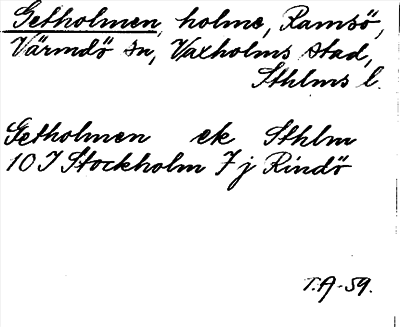 Getholmen, holme, Ramsö,
Värmdö sn, Vaxholms stad,
Sthlms l.
Getholmen ek Sthlm
10 I Stockholm 7 j Rindö
T.A-59.